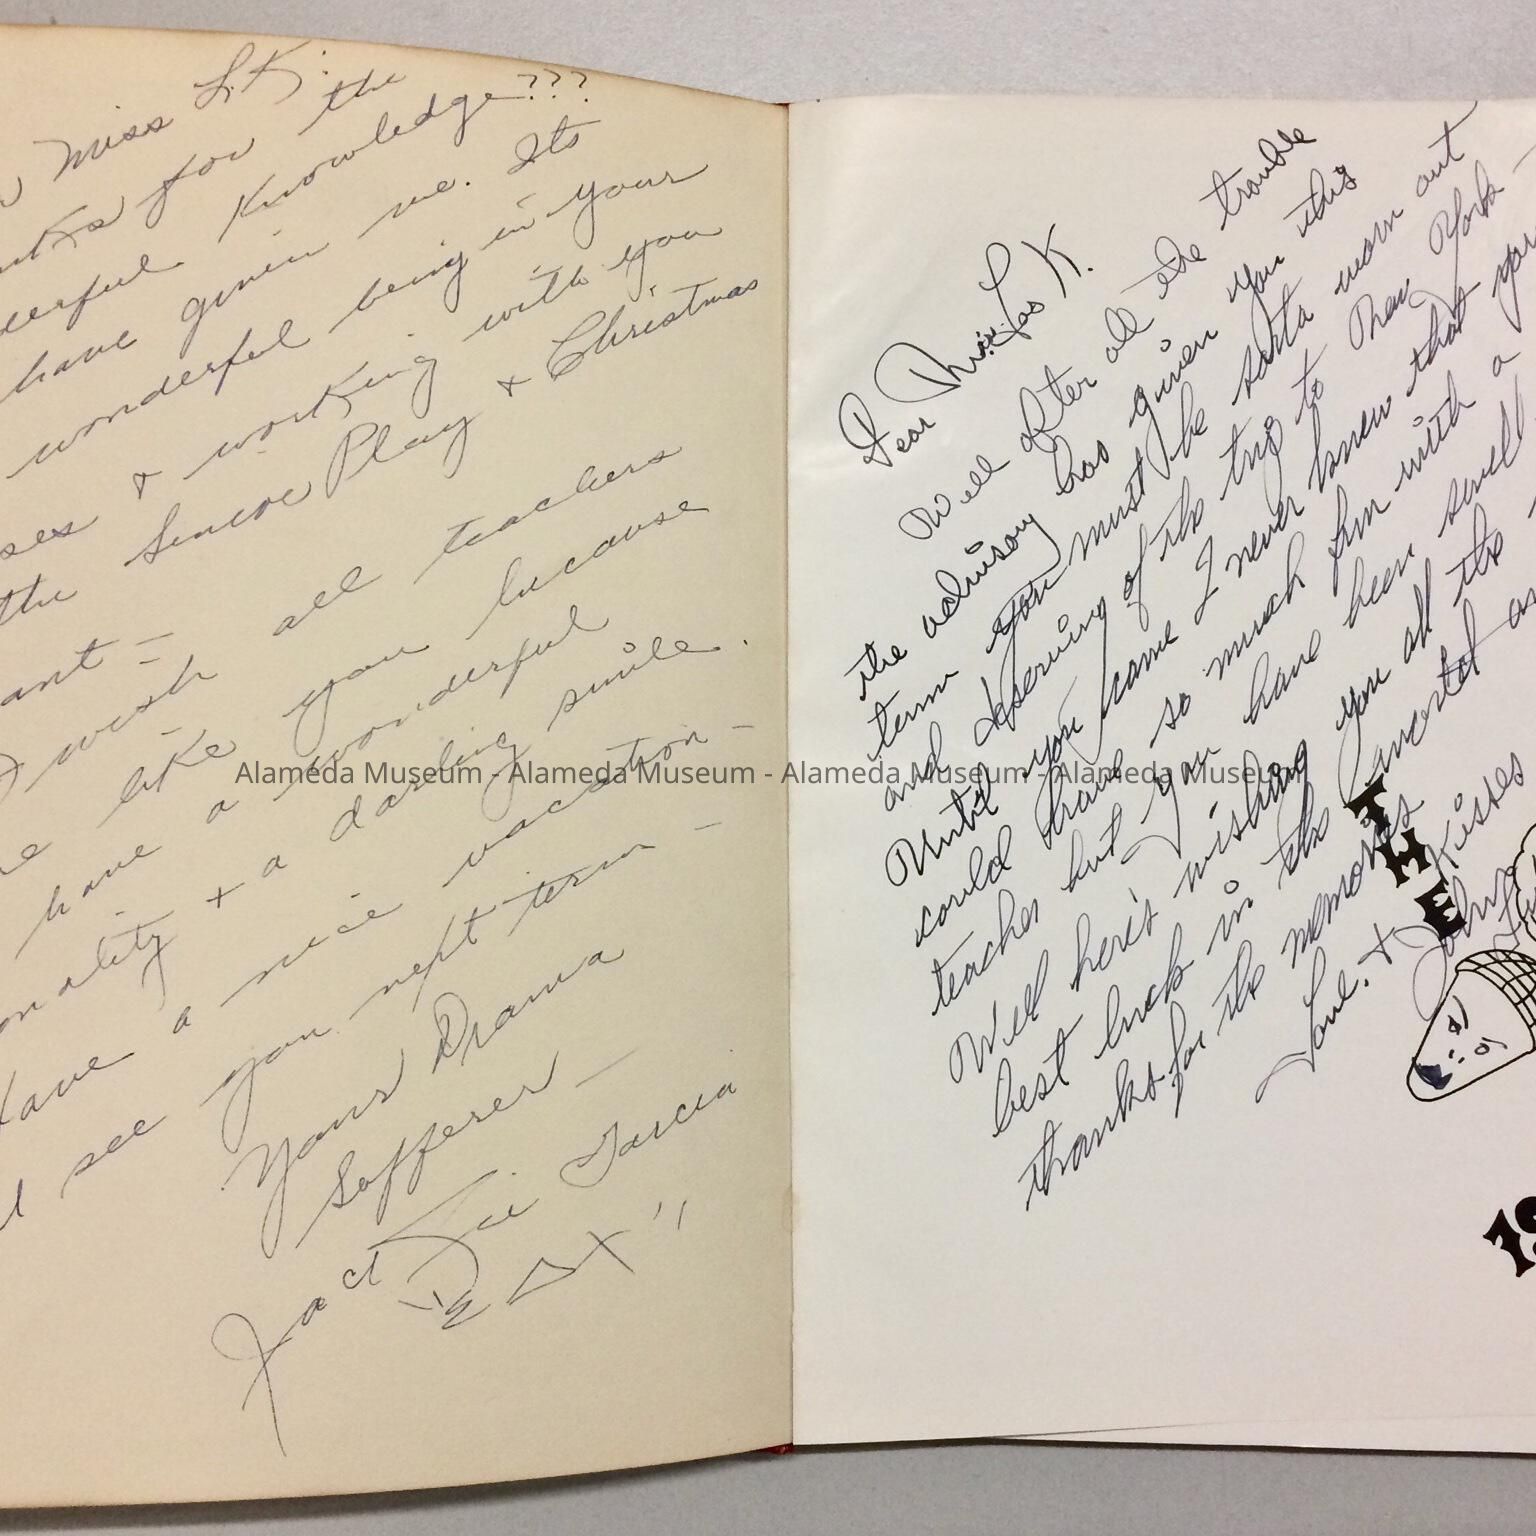 Miss L.K:
for the
Knowledge???
have given me. Its
wonderful being in your
& working with you
the Senior Play & Christmas
ant =
wish all teachers
like you because
have a wonderful
onality & a darling smile.
Have a nice vacation -
see you next term -
Yours Drama
Sufferer -
Jackie Garcia
Dear Miss Los K.
Well after all the trouble
the advisory has given you this
term you must be sorta worn out
and deserving of the trip to New York -
Until you came I never knew that you
could have so much fun with a
teacher but you have been swell
Well here's wishing you all the
best luck in the
thanks for the memories
Love & Kisses
John
TIME
19
Alameda Museum - Alameda Museum - Alameda Museum - Alameda Museum